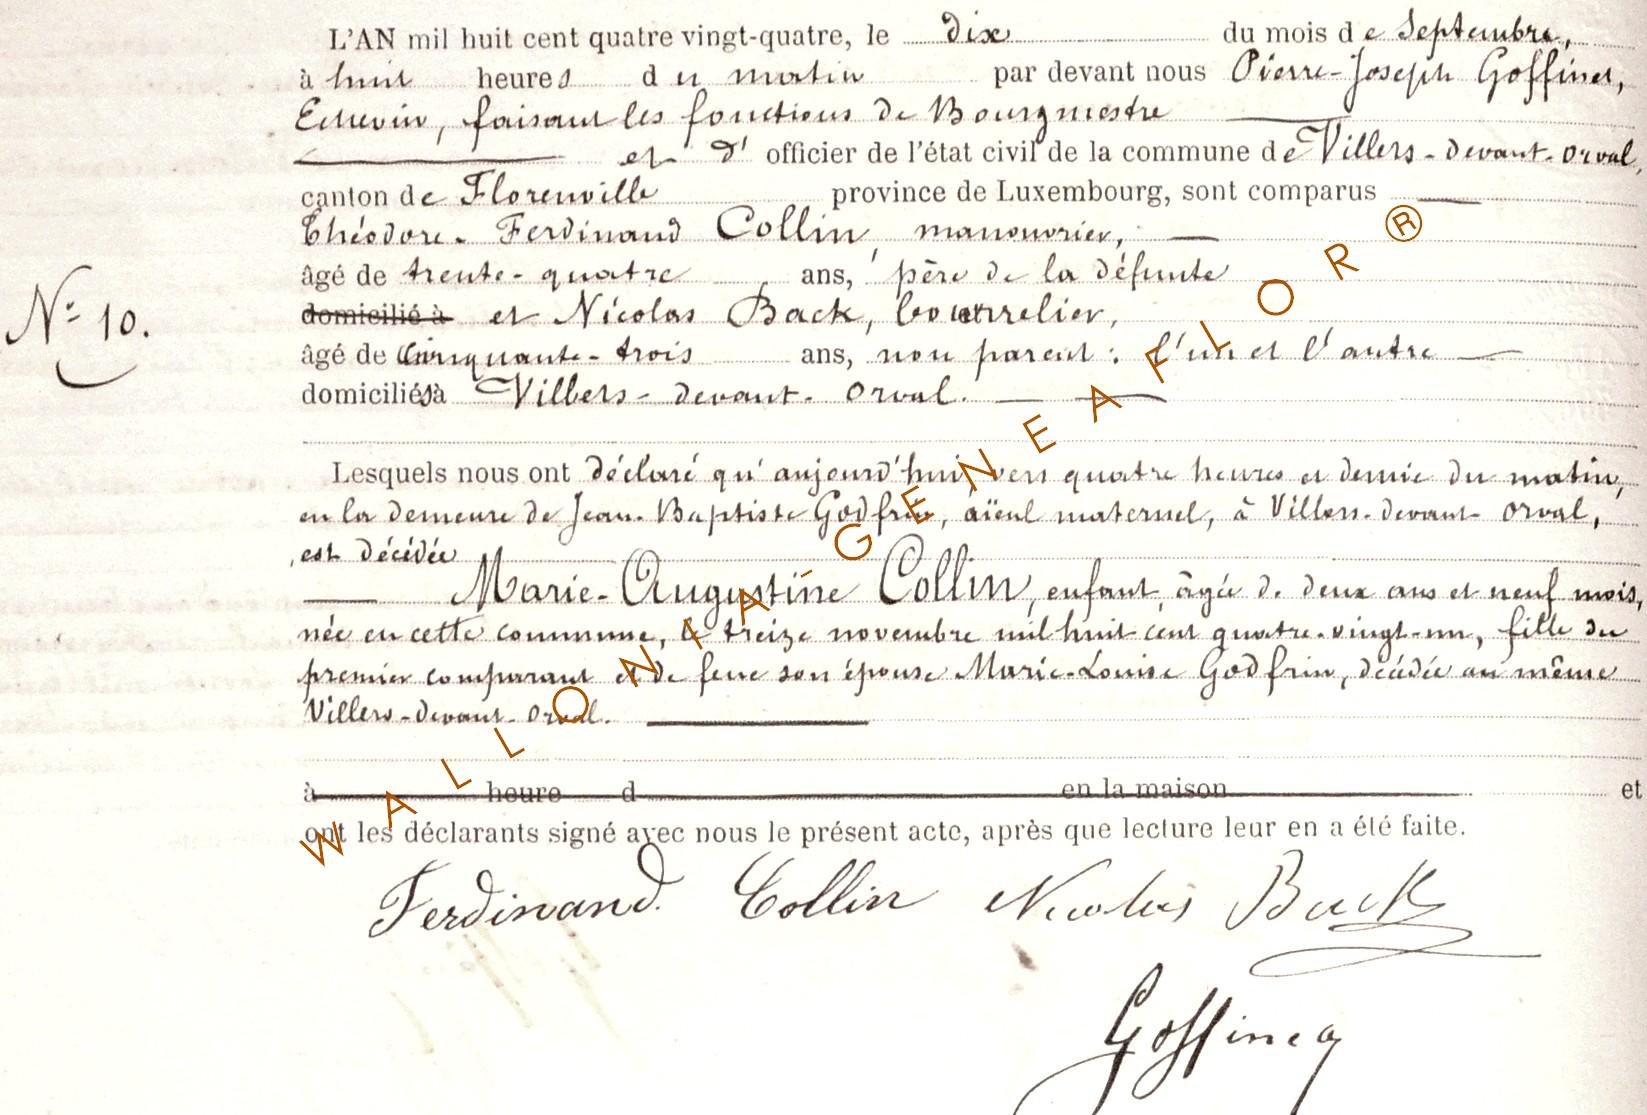 L'AN mil huit cent quatre vingt-quatre, le dix du mois de Septembre,
à huit heures du matin par devant nous Pierre-Joseph Goffinet,
Echevin, faisant les fonctions de Bourgmestre
et d' officier de l'état civil de la commune de Villers-devant-Orval,
canton de Florenville province de Luxembourg, sont comparus
Théodore-Ferdinand Collin, manouvrier,
âgé de trente-quatre ans, père de la défunte
domicilié à et Nicolas Back, bourrelier,
N° 10.
âgé de cinquante-trois ans, non parent : l'un et l'autre
domiciliés à Villers-devant-Orval.
Lesquels nous ont déclaré qu'aujourd'hui vers quatre heures et demie du matin,
en la demeure de Jean-Baptiste Godfrin, aïeul maternel, à Villers-devant-Orval,
est décédée
Marie-Augustine Collin, enfant, âgée de deux ans et neuf mois,
née en cette commune, le treize novembre mil huit cent quatre-vingt-un, fille du
premier comparant et de feue son épouse Marie-Louise Godfrin, décédée au même
Villers-devant-Orval.
à heure d en la maison et
ont les déclarants signé avec nous le présent acte, après que lecture leur en a été faite.
Ferdinand Collin Nicolas Back
WALLONIA-GENEAFLOR®